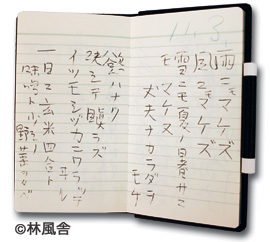 11.3.
雨ニモマケズ
風ニモマケズ
雪ニモ夏ノ暑サニモ
マケヌ
丈夫ナカラダヲ
モチ
慾ハナク
決シテ瞋ラズ
イツモシヅカニワラッテ
ヰル
一日ニ玄米四合ト
味噌ト少シノ野菜ヲタベ
©林風舎